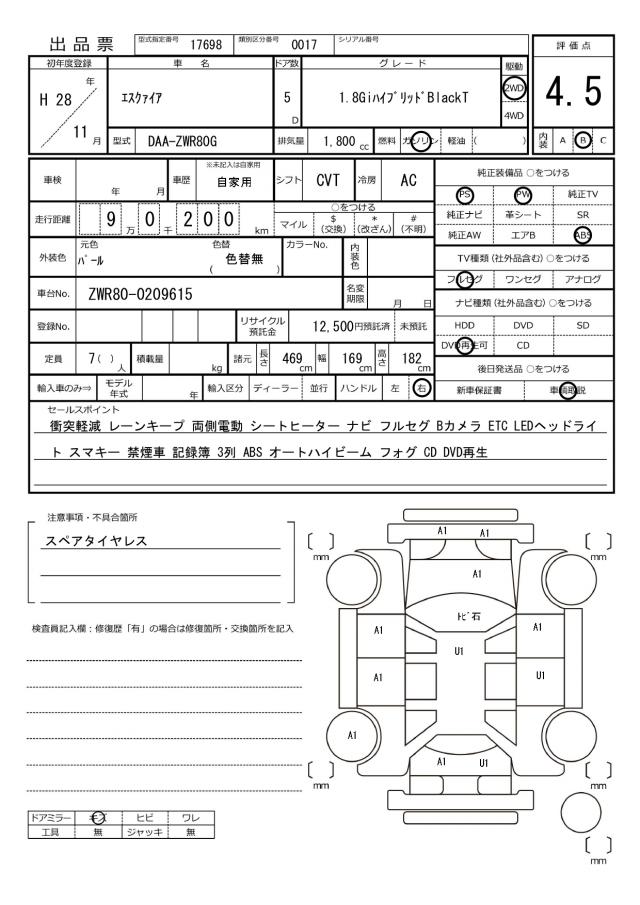 出品票 型式指定番号 17698 類別区分番号 0017 シリアル番号
評価点
初年度登録 車名 ドア数 グレード 駆動
H 28 年 エスクァイア 5 D 1.8GiハイブリッドBlackT 2WD 4.5
11 月 4WD
型式 DAA-ZWR80G 排気量 1,800 cc 燃料 ガソリン 軽油 ( ) 内装 A B C
車検 年 月 車歴 ※未記入は自家用 自家用 シフト CVT 冷房 AC
純正装備品 ○をつける
PS PW 純正TV
走行距離 9 万 0 千 200 km ○をつける
マイル $(交換) *(改ざん) #(不明)
純正ナビ 革シート SR
純正AW エアB ABS
外装色 元色 パール 色替 ( 色替無 ) カラーNo. 内装色
TV種類(社外品含む)○をつける
フルセグ ワンセグ アナログ
車台No. ZWR80-0209615 名変期限 月 日
ナビ種類(社外品含む)○をつける
登録No. リサイクル預託金 12,500円預託済 未預託
HDD DVD SD
DVD再生可 CD
定員 7( )人 積載量 kg 諸元 長さ 469 cm 幅 169 cm 高さ 182 cm
後日発送品 ○をつける
輸入車のみ⇒ モデル年式 年 輸入区分 ディーラー 並行 ハンドル 左 右
新車保証書 車輌取説
セールスポイント
衝突軽減 レーンキープ 両側電動 シートヒーター ナビ フルセグ Bカメラ ETC LEDヘッドライ
ト スマキー 禁煙車 記録簿 3列 ABS オートハイビーム フォグ CD DVD再生
注意事項・不具合箇所
スペアタイヤレス
検査員記入欄：修復歴「有」の場合は修復箇所・交換箇所を記入
A1 A1
[ ] mm [ ] mm
A1
トビ石
A1 A1
U1
A1 U1
A1
A1 U1
[ ] mm [ ] mm
ドアミラー キズ ヒビ ワレ
工具 無 ジャッキ 無
[ ] mm